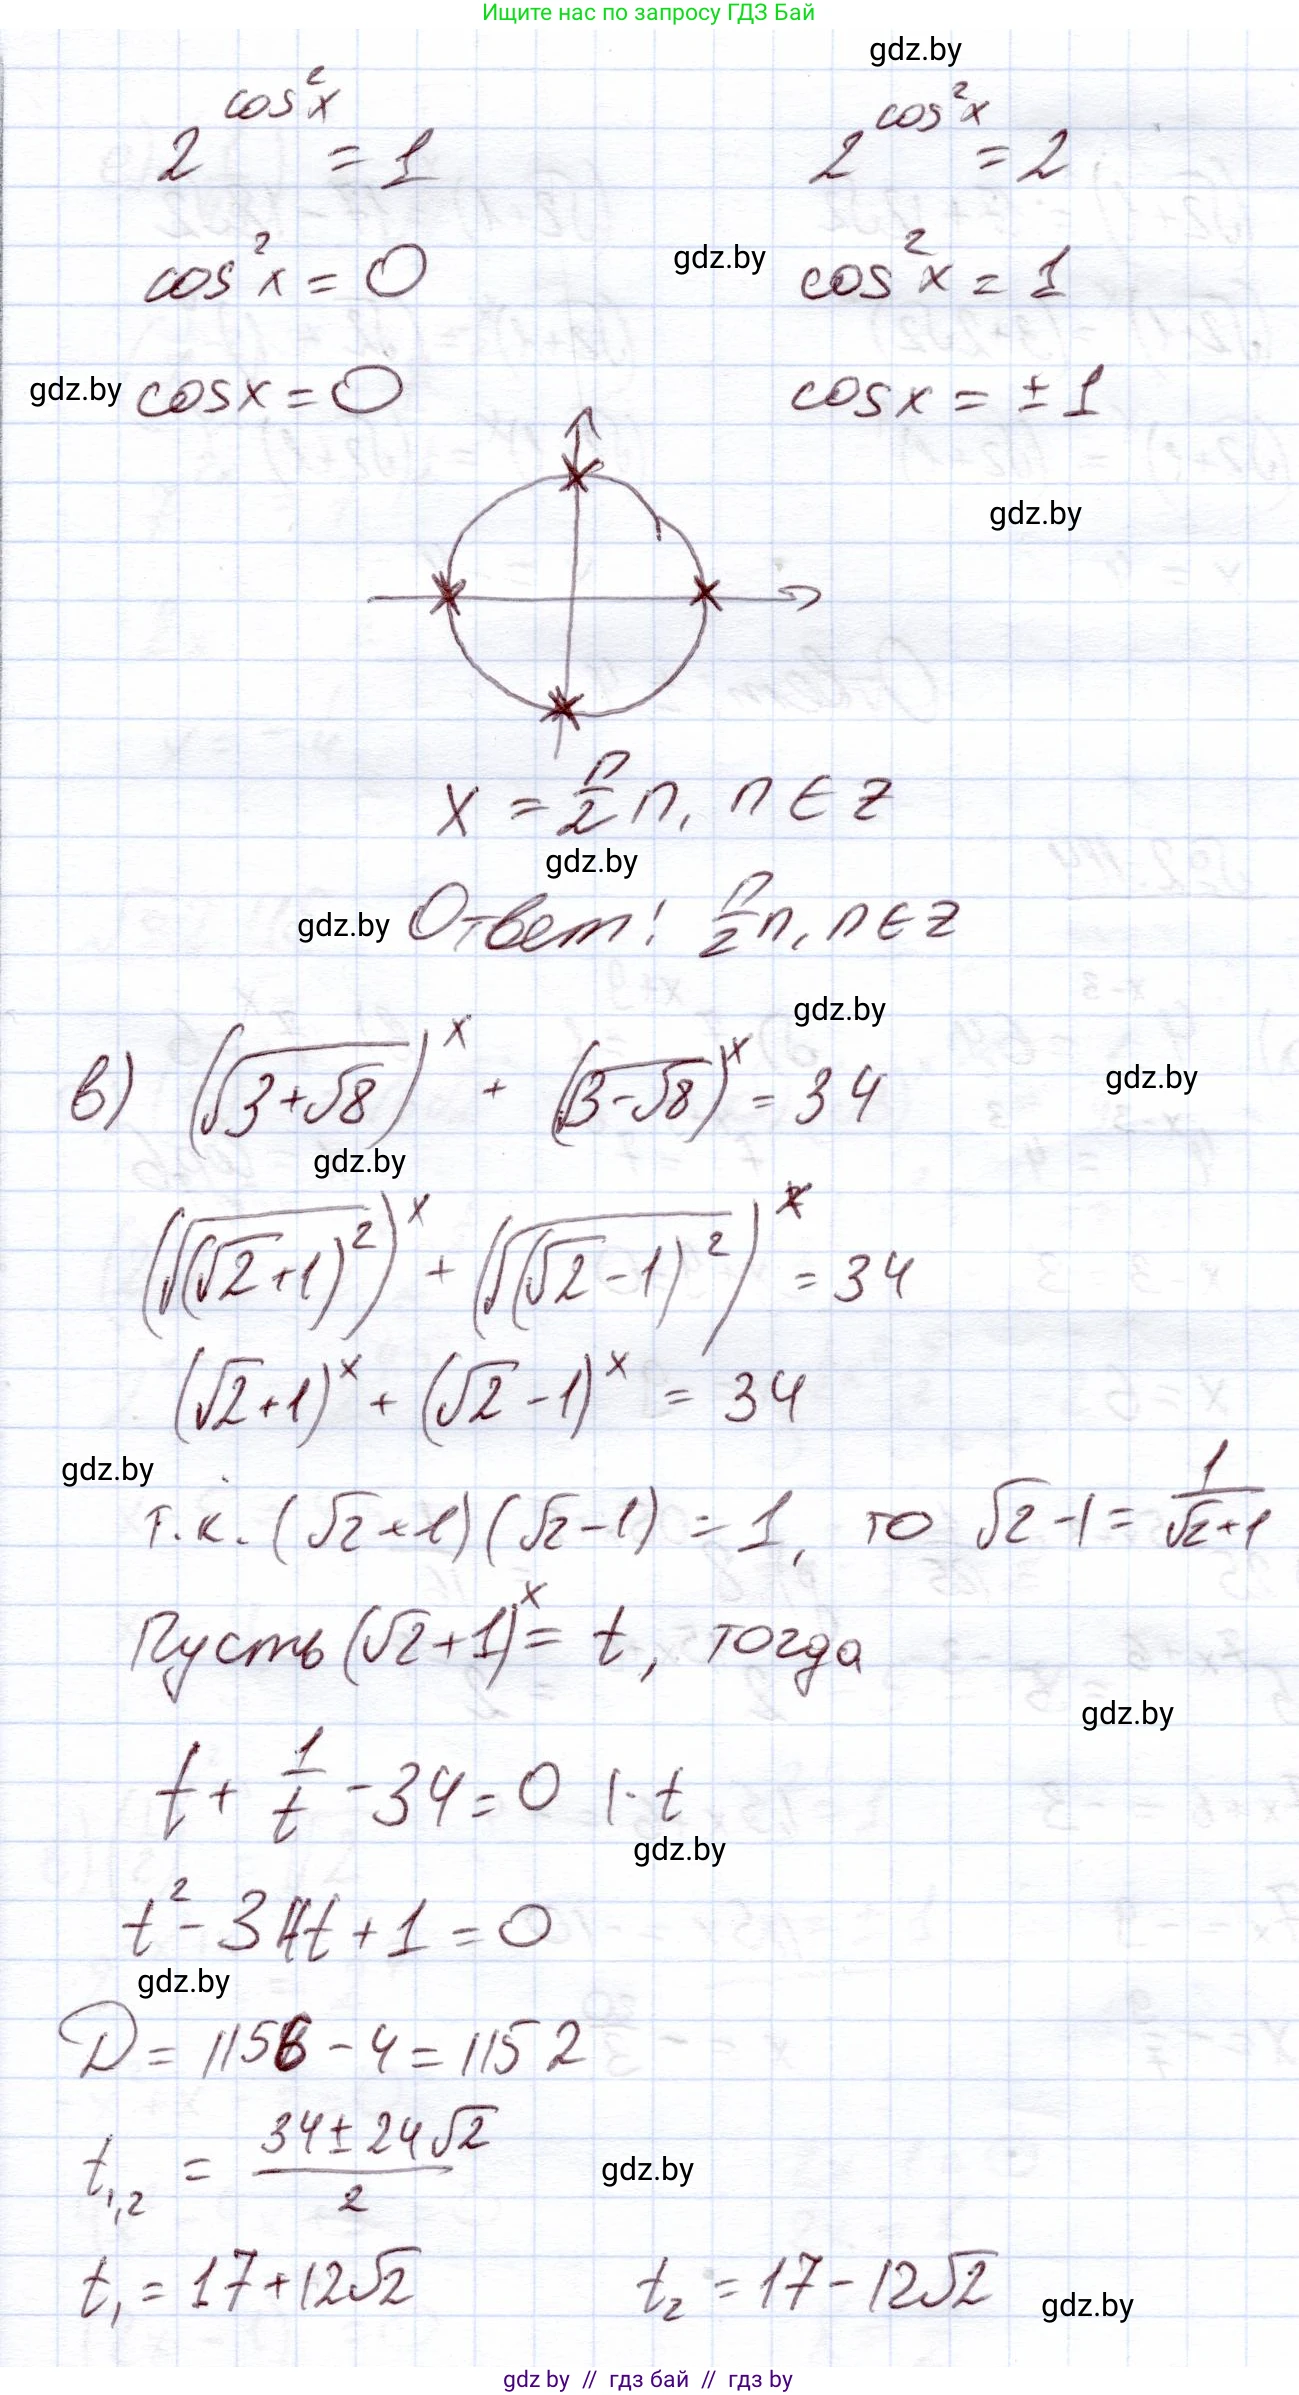 Ищите нас по запросу ГДЗ Бай
gdz.by
2^{cos²x} = 1    2^{cos²x} = 2
cos²x = 0    gdz.by    cos²x = 1
gdz.by cosx = 0    cosx = ±1
gdz.by
x = π/2 n, n ∈ z
gdz.by
gdz.by Ответ! π/2 n, n ∈ z
gdz.by
в) (√(3+√8))^x + (√(3-√8))^x = 34
gdz.by
gdz.by
(√((√2+1)²))^x + (√((√2-1)²))^x = 34
(√2+1)^x + (√2-1)^x = 34
gdz.by
т.к. (√2+1)(√2-1) = 1, то √2-1 = 1/(√2+1)
Пусть (√2+1)^x = t, тогда
gdz.by
t + 1/t - 34 = 0 |· t
gdz.by
t² - 34t + 1 = 0
gdz.by
D = 1156 - 4 = 1152
t₁,₂ = (34 ± 24√2)/2
gdz.by
t₁ = 17+12√2    t₂ = 17-12√2
gdz.by
gdz by // гдз бай // гдз by